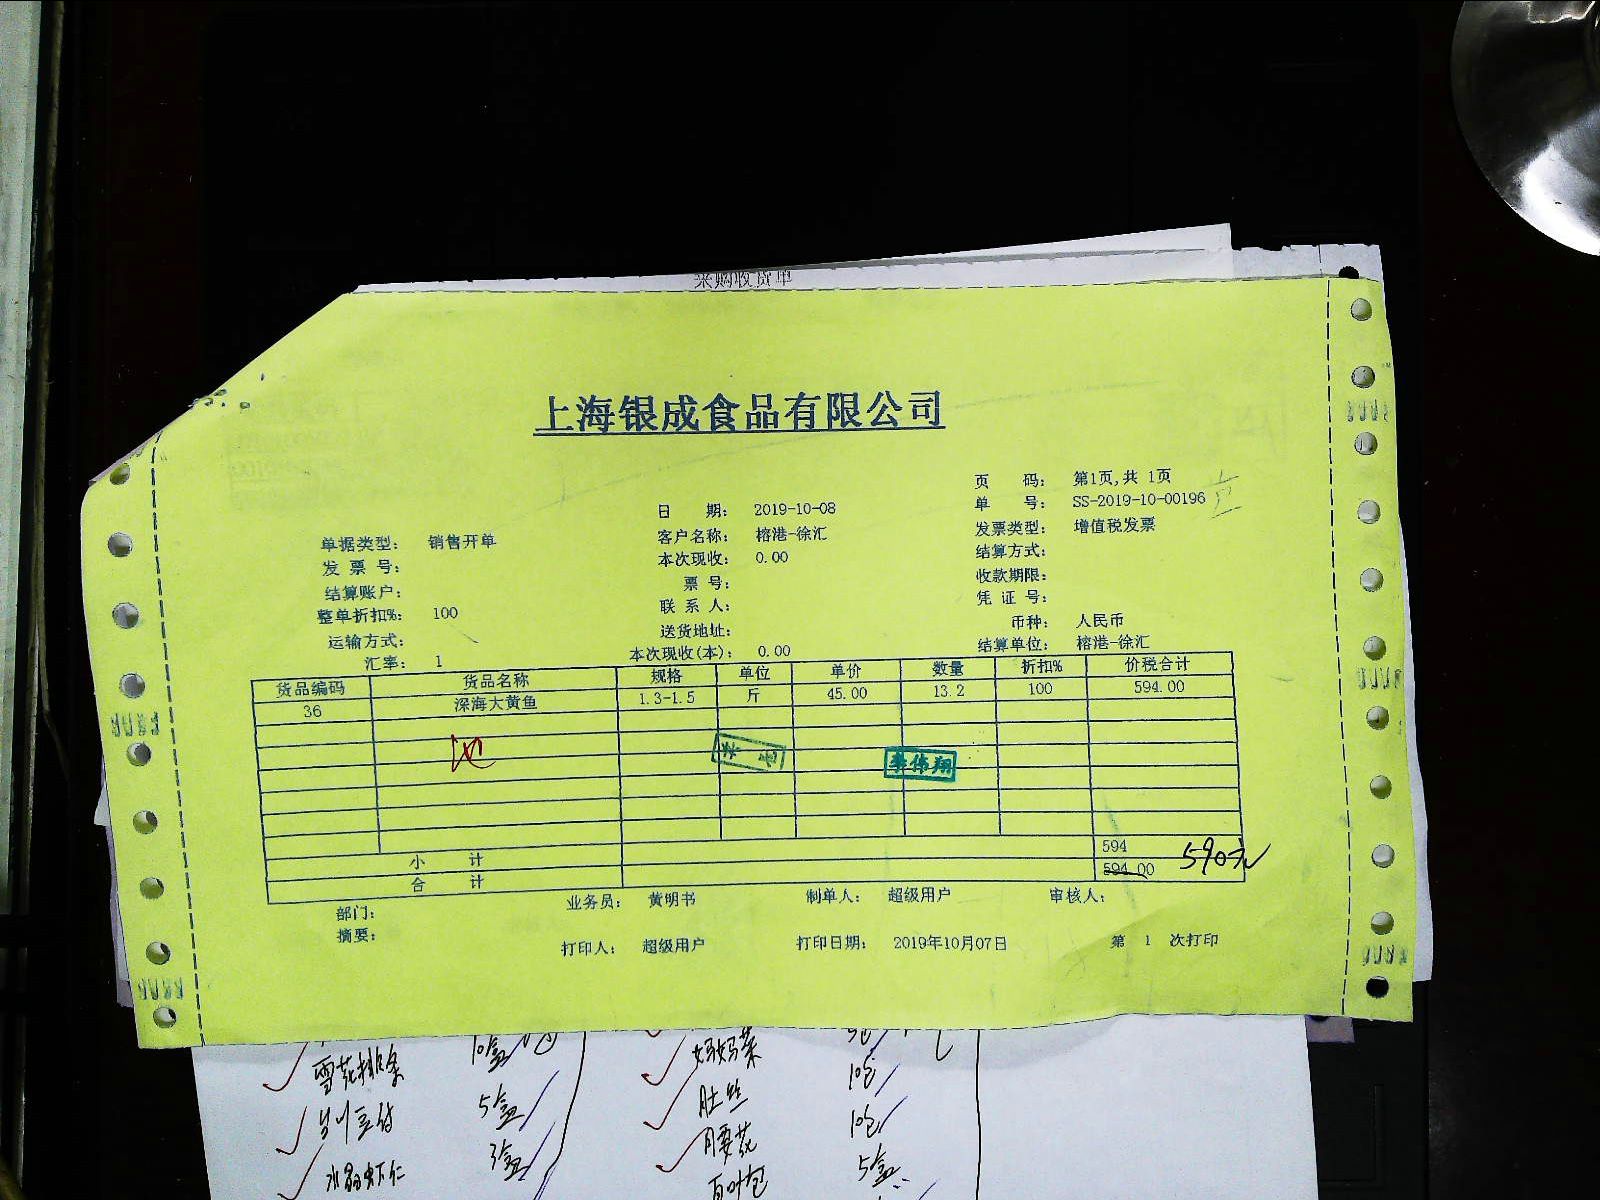 采购收货单
上海银成食品有限公司
页 码: 第1页,共 1页
日 期: 2019-10-08 单 号: SS-2019-10-00196
单据类型: 销售开单 客户名称: 榕港-徐汇 发票类型: 增值税发票
发 票 号: 本次现收: 0.00 结算方式:
结算账户: 票 号: 收款期限:
整单折扣%: 100 联 系 人: 凭 证 号:
运输方式: 送货地址: 币种: 人民币
汇率: 1 本次现收(本): 0.00 结算单位: 榕港-徐汇
货品编码 货品名称 规格 单位 单价 数量 折扣% 价税合计
36 深海大黄鱼 1.3-1.5 斤 45.00 13.2 100 594.00
李伟翔
小 计 594
合 计 594.00 590元
部门: 业务员: 黄明书 制单人: 超级用户 审核人:
摘要: 打印人: 超级用户 打印日期: 2019年10月07日 第 1 次打印
雪花排条 10盒 妈妈菜 5包
5盒 肚丝 10包
水晶虾仁 3盒 腰花 10包
百叶包 5盒